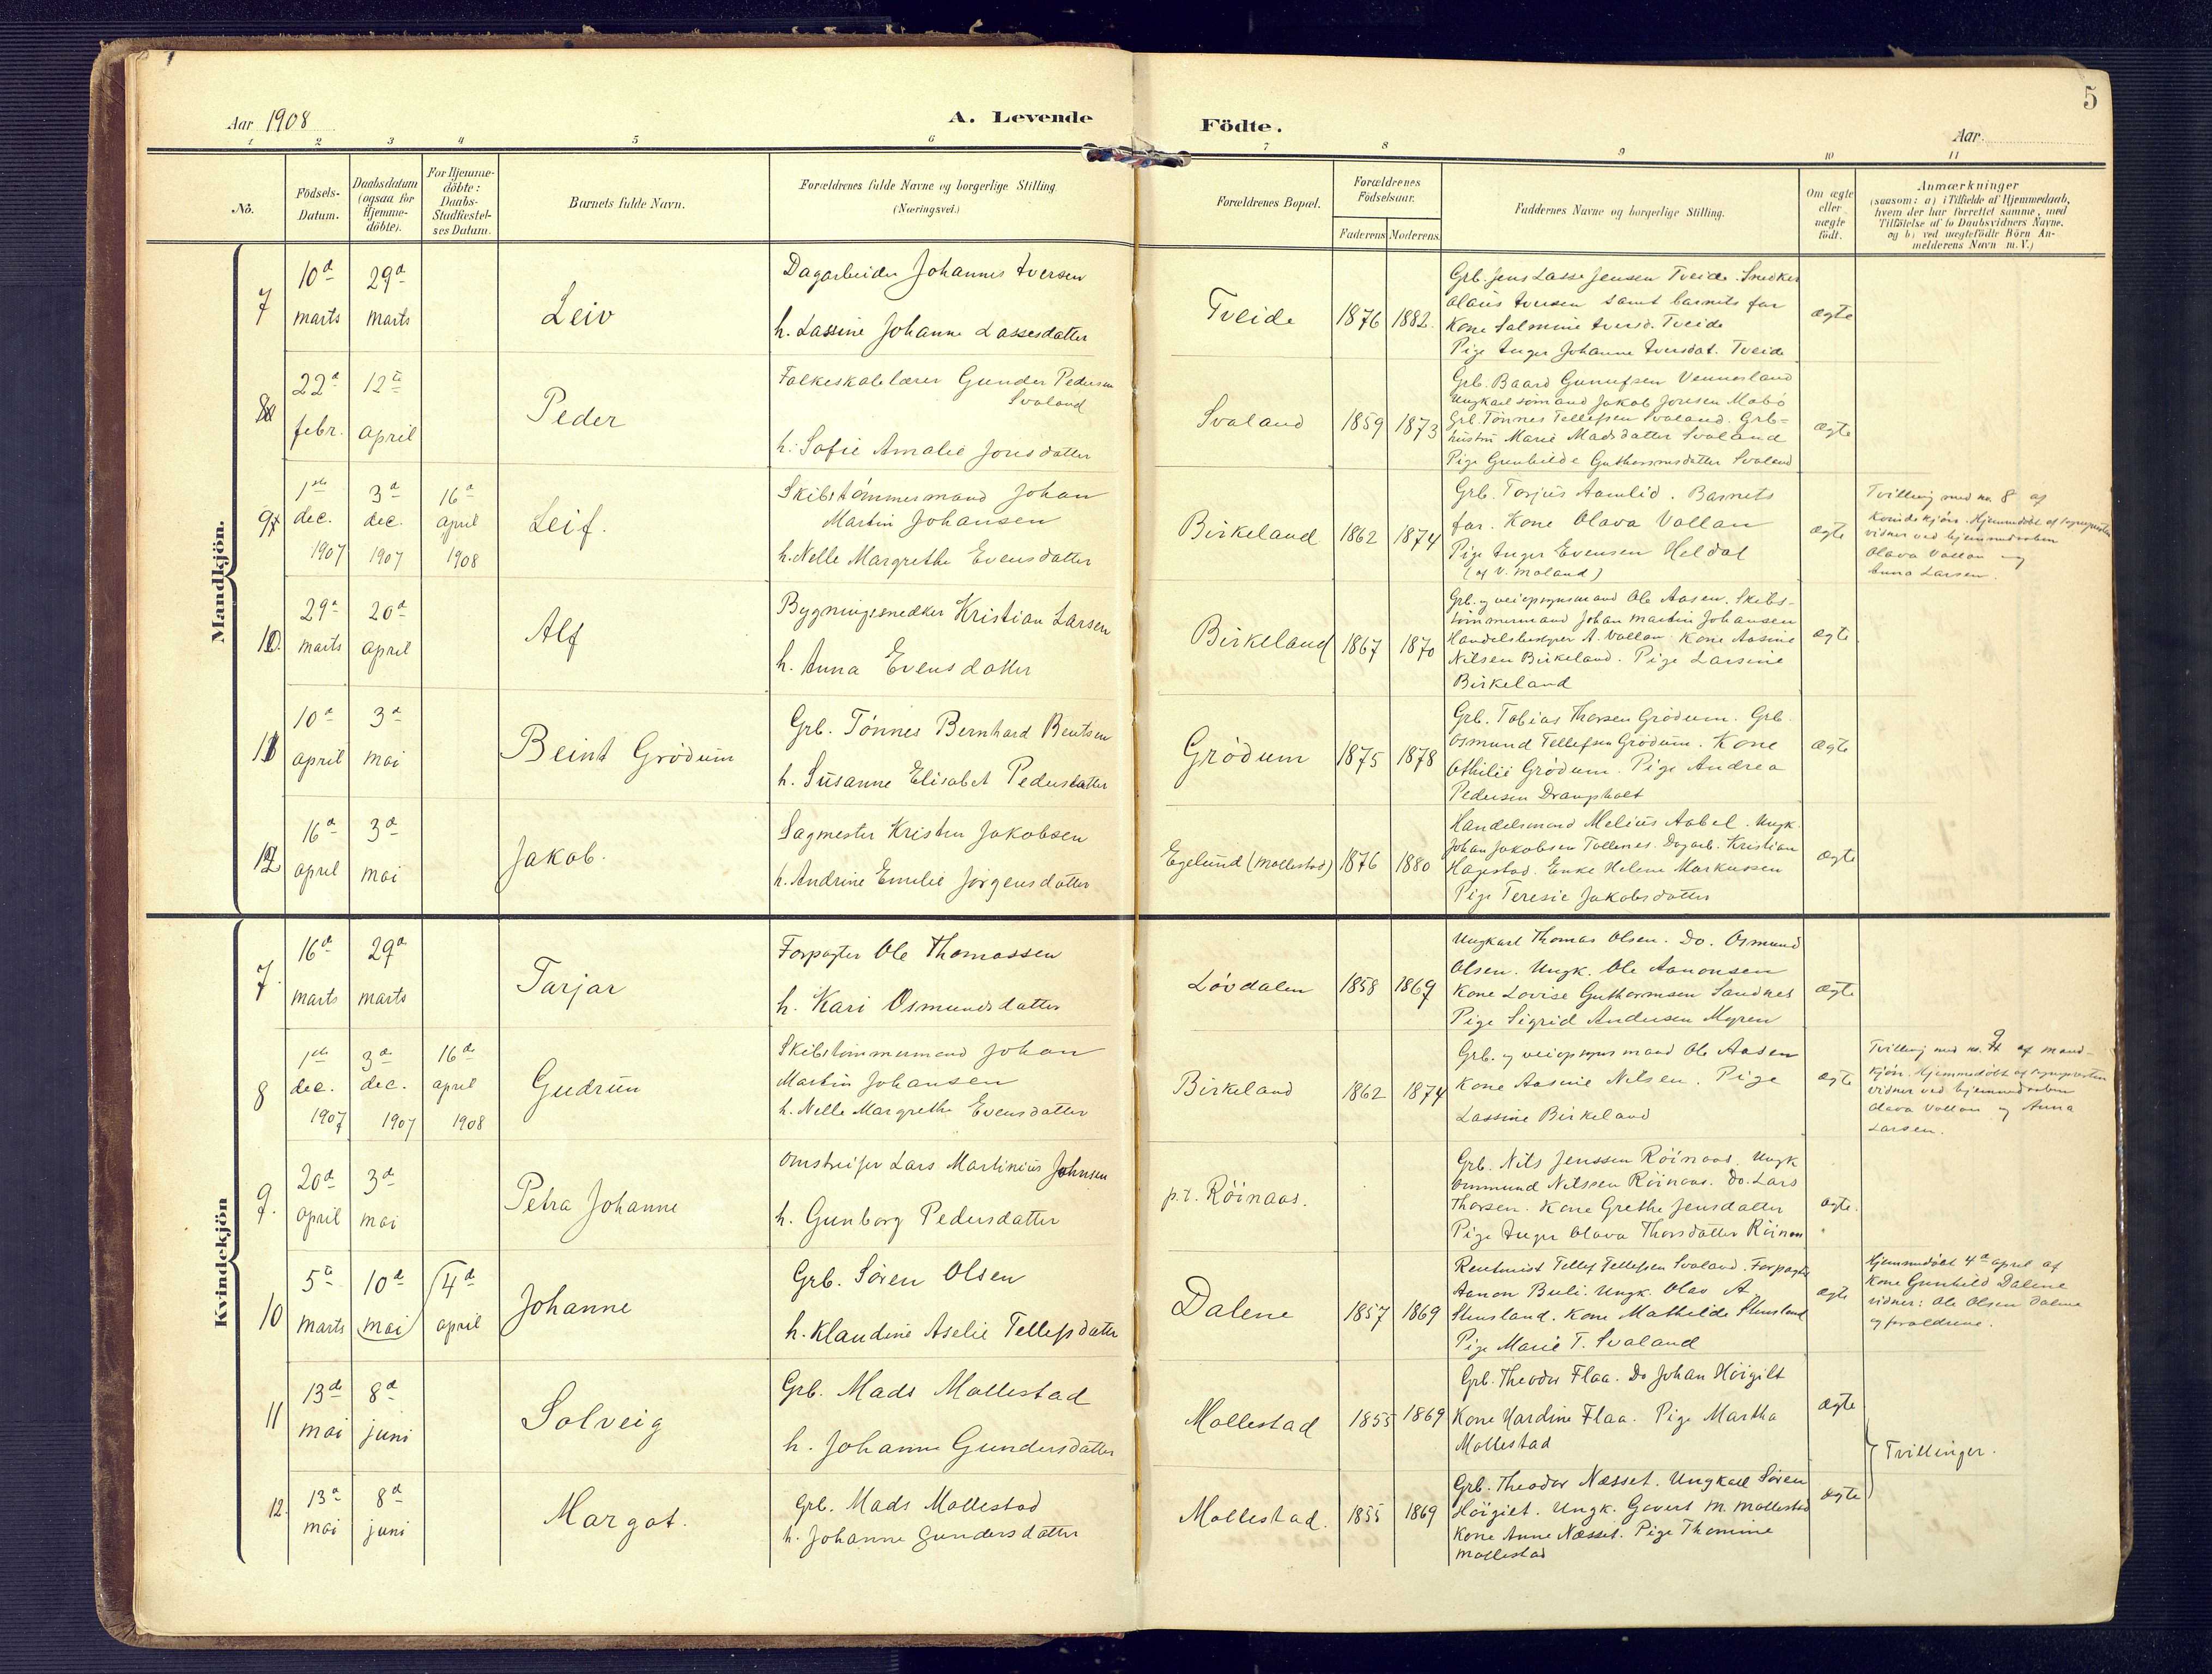 5
Aar 1908
A. Levende
Födte.
Aar
1 2 3 4 5 6 7 8 9 10 11
No.
Födsels-
Datum.
Daabsdatum
(ogsaa for
Hjemme-
döbte).
For Hjemme-
döbte:
Daabs-
Stadfæstel-
ses Datum.
Barnets fulde Navn.
Forældrenes fulde Navne og borgerlige Stilling
(Næringsvei.)
Forældrenes Bopæl.
Forældrenes
Födselsaar.
Faderens
Moderens.
Faddernes Navne og borgerlige Stilling.
Om ægte
eller
uægte
födt.
Anmærkninger
(saasom: a) i Tilfælde af Hjemmedaab,
hvem der har forrettet samme, med
Tilföielse af to Daabsvidners Navne.
og b) ved uægtefödte Börn An-
melderens Navn m. V.)
Mandkjön.
7
10d
marts
29d
marts
Leiv
Dagarbeider Johannes Iversen
h. Lassine Johanne Lassesdatter
Tveide
1876
1882.
Grb. Jens Lasse Jensen Tveide. Snedker
Olaus Iversen samt barnets far
Kone Salmine Iversd. Tveide
Pige Inger Johanne Iversdat. Tveide
ægte
8
22d
febr.
12te
april
Peder
Folkeskolelærer Gunder Pedersen
Svaland
h: Sofie Amalie Jorisdatter
Svaland
1859
1873
Grb. Baard Gunufsen Vennesland
Ungkarl sömand Jakob Jonsen Mabö
Grb. Tönnes Tellefsen Svaland. Grb-
hustru Marie Madsdatter Svaland
Pige Gunhilde Guthormsdatter Svaland
ægte
9
1ste
dec.
1907
3d
dec.
1907
16d
april
1908
Leif.
Skibstömmermand Johan
Martin Johansen
h. Nelle Margrethe Evensdatter
Birkeland
1862
1874
Grb. Torjus Aamlid. Barnets
far. Kone Olava Vallan
Pige Inger Evensen Heldal
(af V. Moland)
ægte
Tvilling med no. 8 af
Kvindekjön. Hjemmedöbt af sogneprest
vidner ved hjemmedaaben
Olava Vallan og
Anna Larsen.
10.
29d
marts
20d
april
Alf
Bygningssnedker Kristian Larsen
h. Anna Evensdatter
Birkeland
1867
1870
Grb. og veiopsynsmand Ole Aasen. Skibs-
tömmermand Johan Martin Johansen
Handelsbestyrer A. Vallan. Kone Aasine
Nilsen Birkeland. Pige Larsine
Birkeland
ægte
11
10d
april
3d
mai
Beint Grödum
Grb. Tönnes Bernhard Bentsen
h. Susanne Elisabet Pedersdatter
Grödum
1875
1878
Grb. Tobias Thorsen Grödum. Grb.
Osmund Tellefsen Grödum. Kone
Othilie Grödum. Pige Andrea
Pedersen Drangsholt
ægte
12
16d
april
3d
mai
Jakob.
Sagmester Kristen Jakobsen
h. Andrine Emilie Jörgensdatter
Egelund (Mollestad)
1876
1880
Handelsmand Melius Aabel. Ungk.
Johan Jakobsen Tollenes. Dagarb. Kristian
Hagestad. Enke Helene Markussen
Pige Teresie Jakobsdatter
ægte
Kvindekjön
7.
16d
marts
29d
marts
Tarjar
Forpagter Ole Thomassen
h. Kari Osmundsdatter
Lövdalen
1858
1869
Ungkarl Thomas Olsen. Do. Osmund
Olsen. Ungk. Ole Aanonsen
Kone Lovise Guthormsen Sandnes
Pige Sigrid Andersen Myren
ægte
8
1ste
dec.
1907
3d
dec.
1907
16d
april
1908
Gudrun
Skibstömmermand Johan
Martin Johansen
h. Nelle Margrethe Evensdatter
Birkeland
1862
1874
Grb. og veiopsynsmand Ole Aasen
Kone Aasine Nilsen. Pige
Lassine Birkeland
ægte
Tvilling med no. 9 af mand-
kjön. Hjemmedöbt af sognepresten
vidner ved hjemmedaaben
Olava Vallan og Anna
Larsen.
9.
20d
april
3d
mai
Petra Johanne
Omstreifer Lars Martinius Johnsen
h. Gunborg Pedersdatter
p.t. Röinaas.
Grb. Nils Jenssen Röinaas. Ungk
Ommund Nilssen Röinaas. Do. Lars
Thorsen. Kone Grethe Jensdatter
Pige Inger Olava Thorsdatter Röinaas
ægte.
10
5te
marts
10d
mai
4d
april
Johanne
Grb. Sören Olsen
h. Klaudine Aselie Tellefsdatter
Dalene
1857
1869
Rentenist Tellef Tellefsen Svaland. Forpagter
Aanon Buli. Ungk. Olav A.
Stensland. Kone Mathilde Stensland
Pige Marie T. Svaland
ægte
Hjemmedöbt 4d april af
Kone Gunhild Dalene
vidner: Ole Olsen Dalene
og forældrene.
11
13de
mai
8d
juni
Solveig
Grb. Mads Mollestad
h. Johanne Gundersdatter
Mollestad
1855
1869
Grb. Theodor Flaa. Do Johan Höigilt
Kone Hardine Flaa. Pige Martha
Mollestad
ægte
Tvillinger.
12.
13d
mai
8d
juni
Margot.
Grb. Mads Mollestad
h. Johanne Gundersdatter
Mollestad.
1855
1869
Grb. Theodor Næsset. Ungkarl Sören
Höigilt. Ungk. Gavert M. Mollestad
Kone Anne Næsset. Pige Thomine
Mollestad
ægte